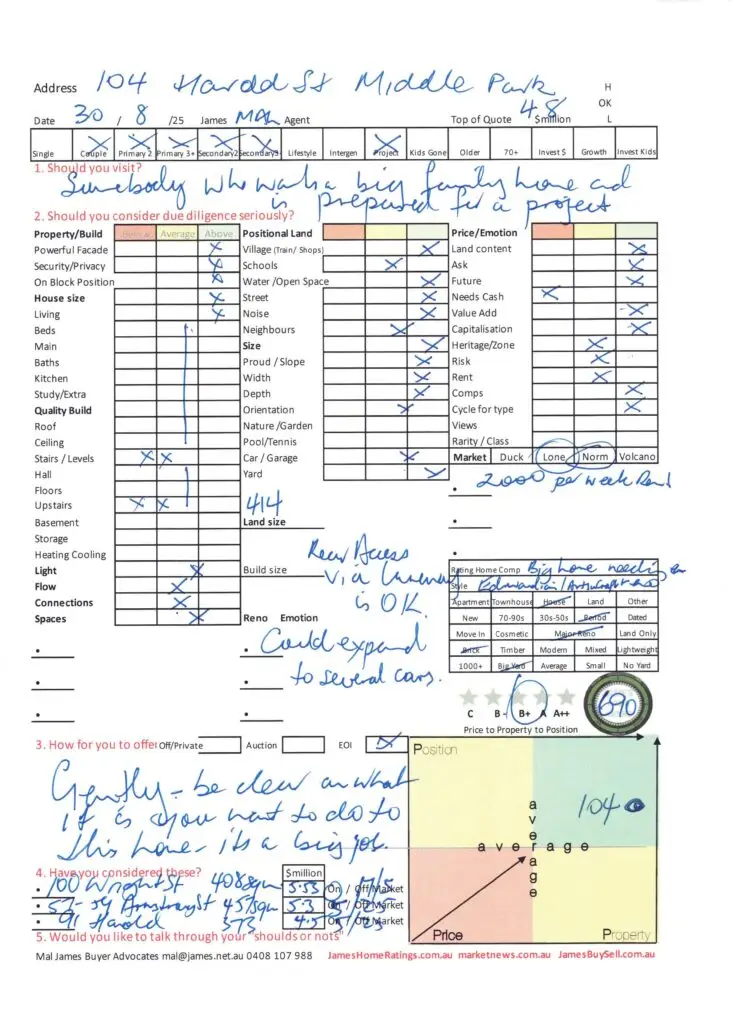 Address 104 Harold St Middle Park H
OK
Date 30 / 8 /25 James MAL Agent Top of Quote 4.8 $million L
Single Couple Primary 2 Primary 3+ Secondary2 Secondary3 Lifestyle Intergen Project Kids Gone Older 70+ Invest $ Growth Invest Kids
1. Should you visit?
Somebody who wants a big family home and
is prepared for a project
2. Should you consider due diligence seriously?
Property/Build Below Average Above Positional Land Price/Emotion
Powerful Facade Village (Train/ Shops) Land content
Security/Privacy Schools Ask
On Block Position Water /Open Space Future
House size Street Needs Cash
Living Noise Value Add
Beds Neighbours Capitalisation
Main Size Heritage/Zone
Baths Proud / Slope Risk
Kitchen Width Rent
Study/Extra Depth Comps
Quality Build Orientation Cycle for type
Roof Nature /Garden Views
Ceiling Pool/Tennis Rarity / Class
Stairs / Levels Car / Garage Market Duck Lone Norm Volcano
Hall Yard • 2000 per week Rent
Floors
Upstairs 414
Basement Land size •
Storage
Heating Cooling Rear Access •
Light Build size via laneway Rating Home Comp Big home needing
Flow is OK. Style Edwardian/
Connections Apartment Townhouse House Land Other
Spaces Reno Emotion New 70-90s 30s-50s Period Dated
• • Could expand Move In Cosmetic Major Reno Land Only
to several cars. Brick Timber Modern Mixed Lightweight
• • 1000+ Big Yard Average Small No Yard
• • C B - B+ A A++ 690
Price to Property to Position
3. How for you to offer Off/Private Auction EOI
Position
Gently - be clear on what
it is you want to do to
this home - its a big job.
104
average
average
4. Have you considered these? $million
• 100 Wright St 408sqm 5.55 On / Off Market
• 52-54 Armstrong St 457sqm 5.3 On / Off Market
• 91 Harold 373 4.5 On / Off Market
5. Would you like to talk through your "shoulds or nots"
Price Property
Mal James Buyer Advocates mal@james.net.au 0408 107 988 JamesHomeRatings.com.au marketnews.com.au JamesBuySell.com.au